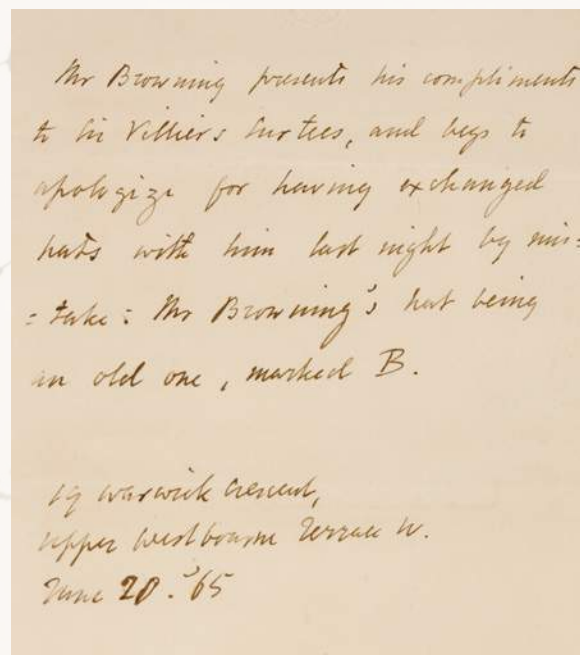 Mr Browning presents his compliments
to Sir Villiers Surtees, and begs to
apologize for having exchanged
hats with him last night by mis=
=take: Mr Browning's hat being
an old one, marked B.
19 Warwick Crescent,
Upper Westbourne Terrace W.
June 20. '65